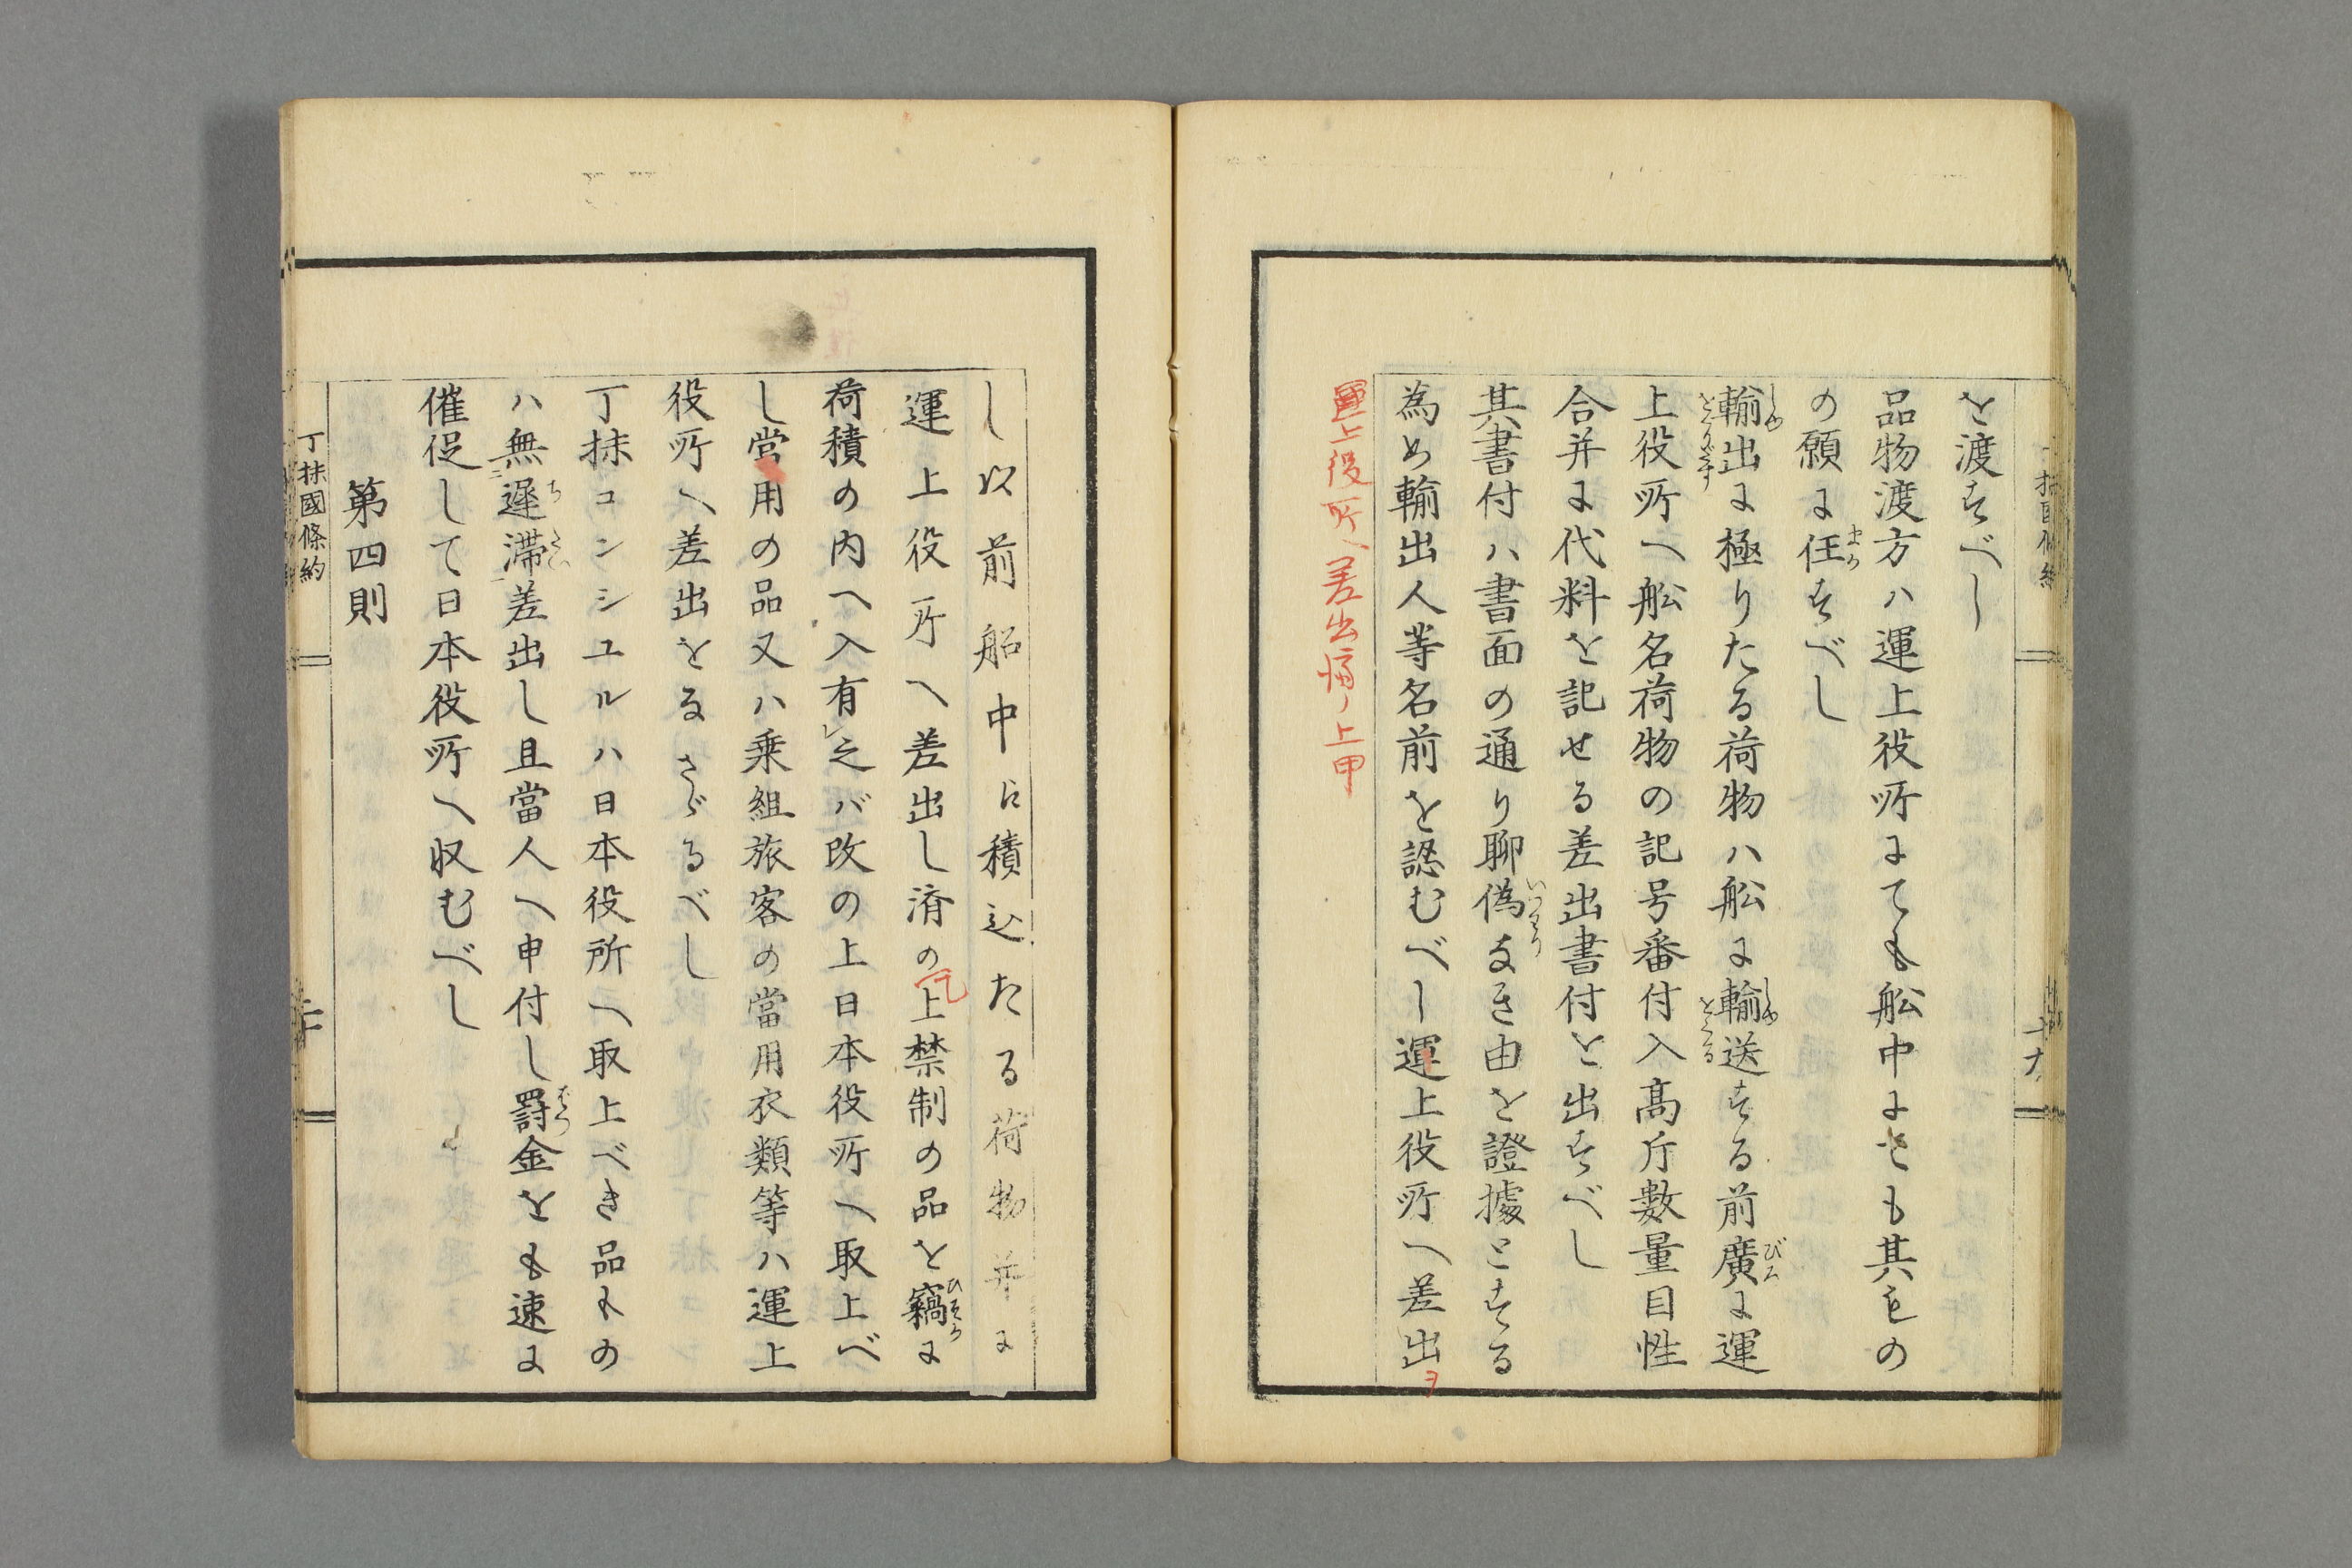 を渡すべし
品物渡方ハ運上役所にても舩中にても其ものゝ
の願に任すべし
輸出に極りたる荷物ハ舩に輸送する前廣に運
上役所へ舩名荷物の記号番付入高斤數量目性
合并に代料を記せる差出書付を出すべし
其書付ハ書面の通り聊偽なき由を證據とする
為め輸出人等名前を認むべし運上役所へ差出
運上役所へ差出濟ノ上甲
し以前船中に積込たる荷物并に
運上役所へ差出し済の上禁制の品を竊に
荷積の内へ入有之バ改の上日本役所へ取上べ
し営用の品又ハ乗組旅客の當用衣類等ハ運上
役所へ差出をるさゞるべし
丁抹コンシユルハ日本役所へ取上べき品々の
ハ無遅滞差出し且當人へ申付し罸金をも速に
催促して日本役所へ収むべし
第四則
丁抹國條約
二十